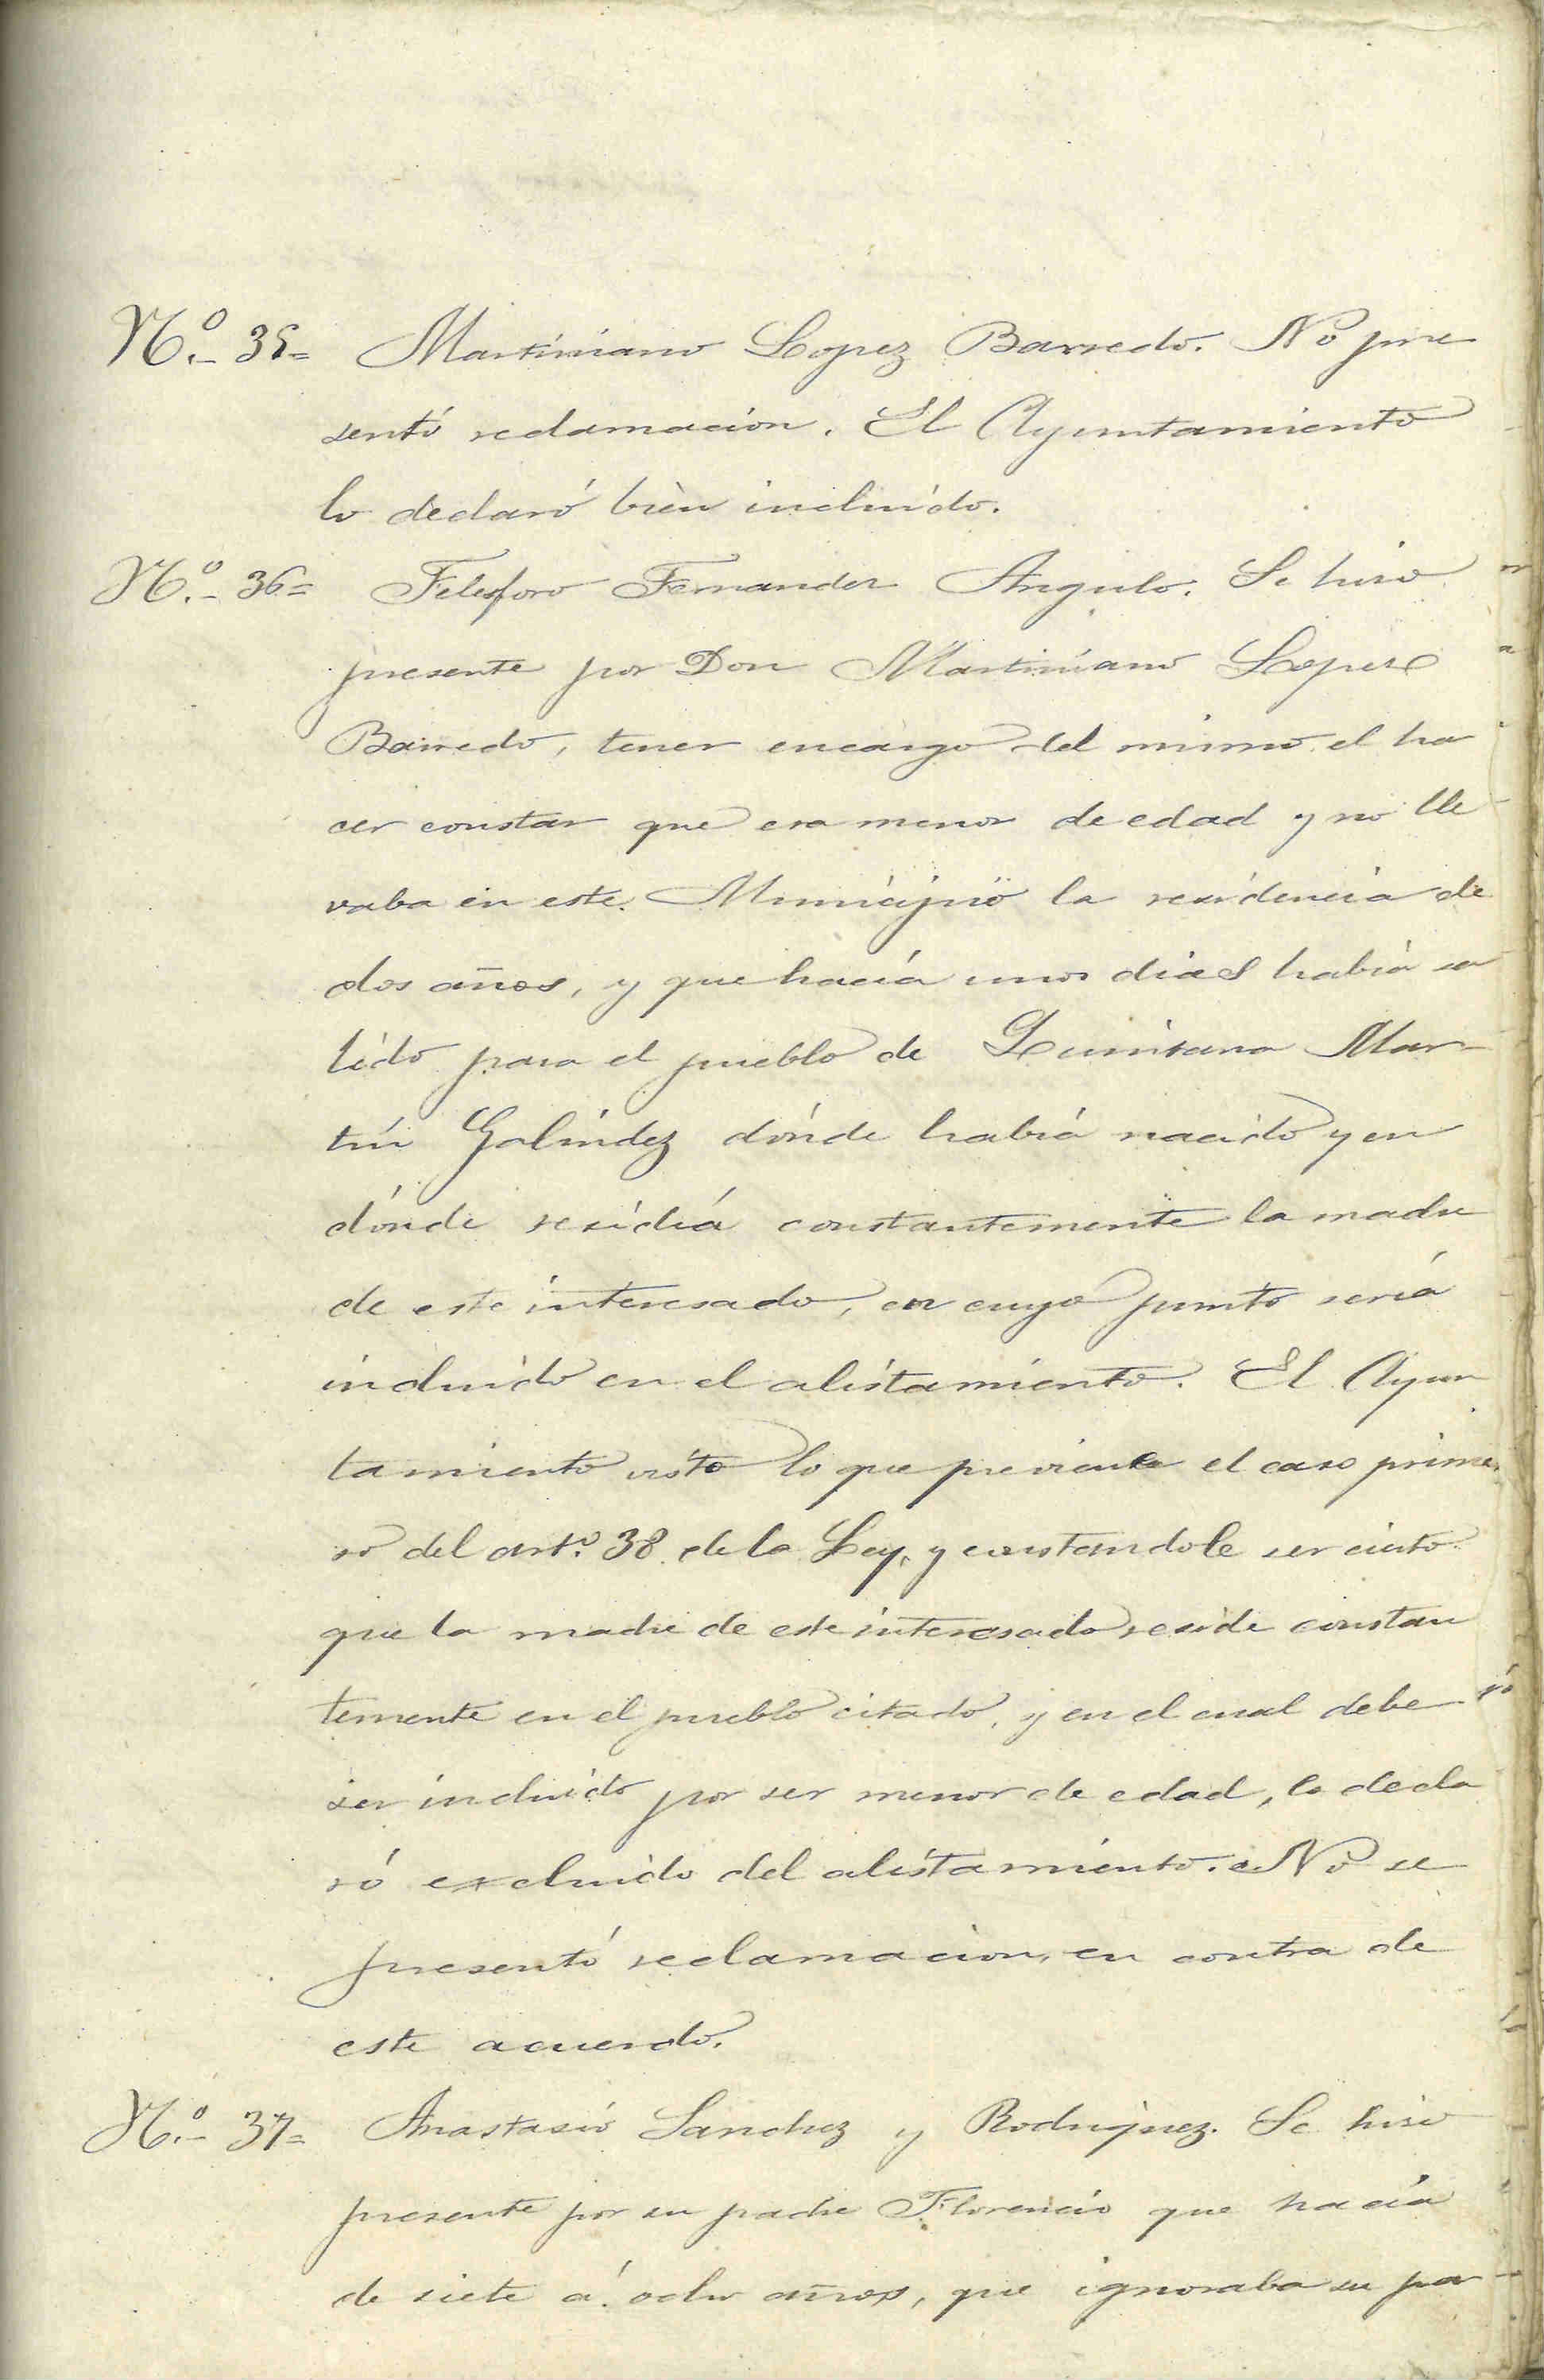 Nº.- 35= Martiniano Lopez Barredo. No pre
sentó reclamación. El Ayuntamiento
lo declaró bién incluído.
Nº.- 36= Telesforo Fernandez Angulo. Se hizo
presente por Don Martiniano Lopez
Barredo, tener encargo del mismo el ha
cer constar que era menor de edad y no lle
vaba en este Municipio la residencia de
dos años, y que hacía unos dias había sa
lido para el pueblo de Quintana Mar-
tín Galíndez dónde había nacido y en
dónde residía constantemente la madre
de este interesado, en cuyo punto sería
incluido en el alistamiento. El Ayun
tamiento visto lo que previene el caso prime
ro del artº. 38 de la Ley, y constandole ser cierto
que la madre de este interesado reside constan
temente en el pueblo citado, y en el cual debe
ser incluido por ser menor de edad, lo decla
ró excluido del alistamiento. No se
presentó reclamacion, en contra de
este acuerdo.
Nº.- 37= Anastasio Sanchez y Rodriguez. Se hizo
presente por su padre Florencio que hacía
de siete á ocho años, que ignoraba su pa-